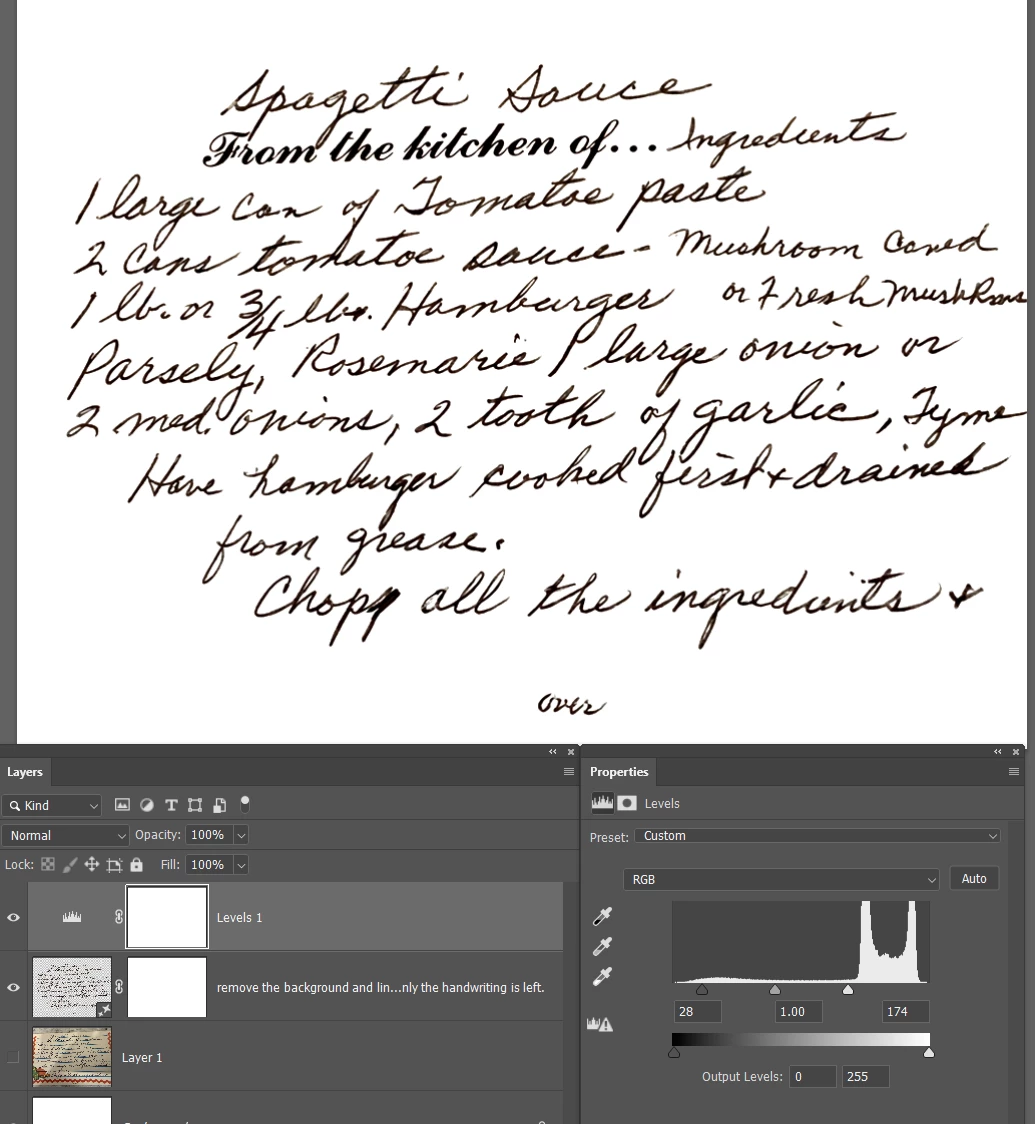 Spagetti Sauce
From the kitchen of... Ingredients
1 large can of Tomatoe paste
2 cans tomatoe sauce - Mushroom Caned
1 lb. or 3/4 lbs. Hamburger or Fresh MushRoons
Parsely, Rosemarie 1 large onion or
2 med. onions, 2 tooth of garlic, Tyme
Have hamburger cooked first + drained
from grease.
Chopp all the ingredients +
over
Layers
Kind
Normal Opacity: 100%
Lock: Fill: 100%
Levels 1
remove the background and lin...nly the handwriting is left.
Layer 1
Properties
Levels
Preset: Custom
RGB Auto
28 1.00 174
Output Levels: 0 255